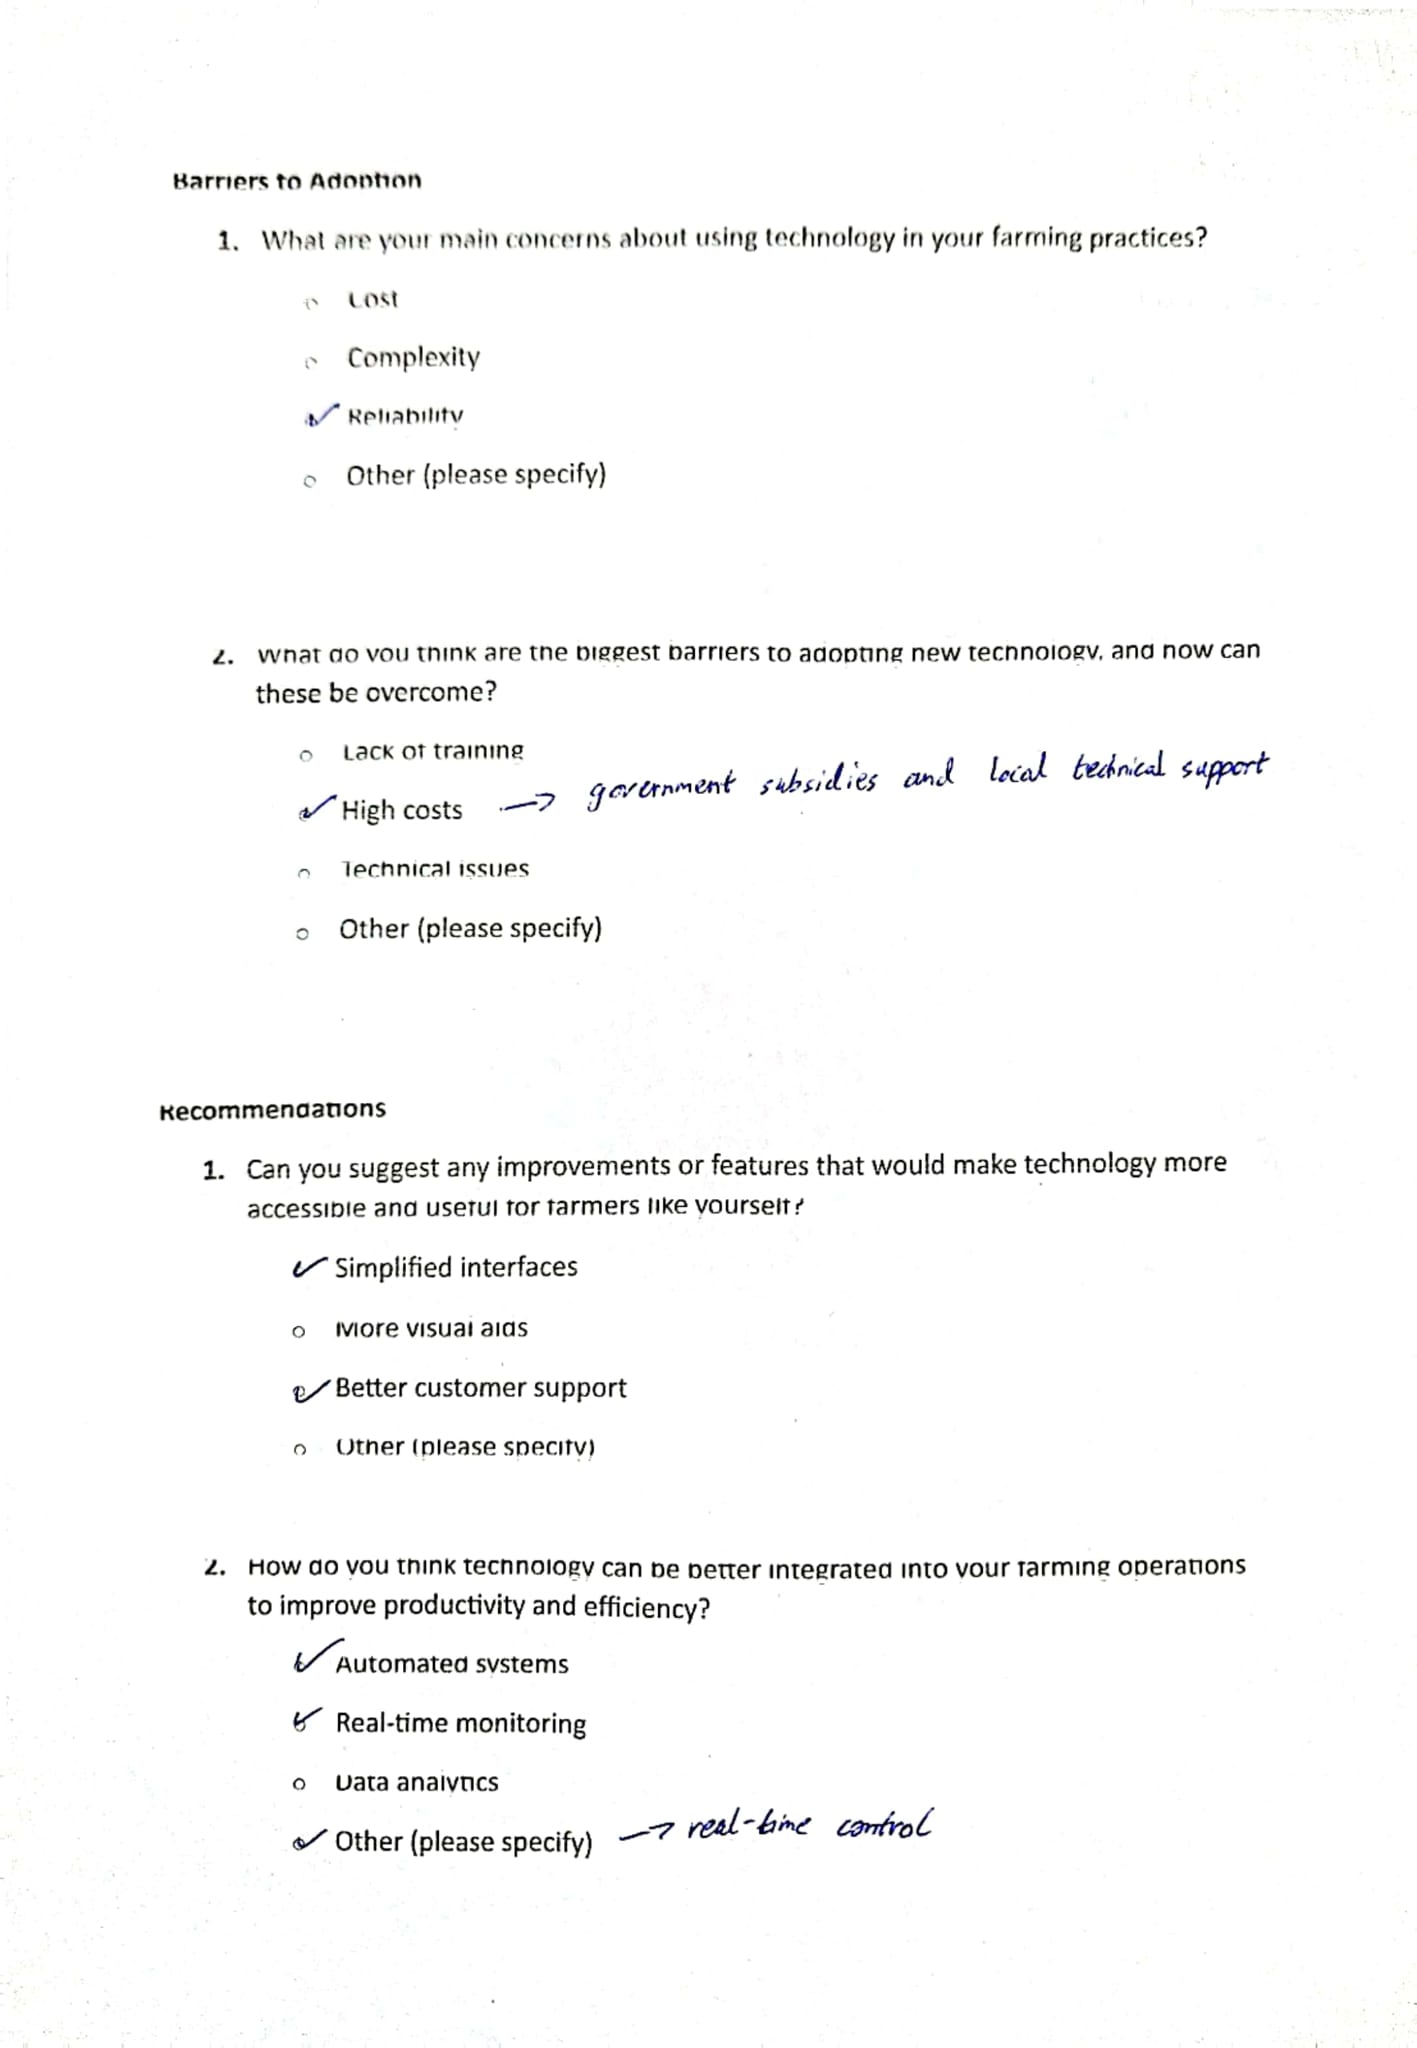 Barriers to Adoption
1. What are your main concerns about using technology in your farming practices?
Cost
Complexity
Reliability
Other (please specify)
2. What do you think are the biggest barriers to adopting new technology, and how can
these be overcome?
Lack of training
High costs → government subsidies and local technical support
Technical issues
Other (please specify)
Recommendations
1. Can you suggest any improvements or features that would make technology more
accessible and useful for farmers like yourself?
Simplified interfaces
More visual aids
Better customer support
Other (please specify)
2. How do you think technology can be better integrated into your farming operations
to improve productivity and efficiency?
Automated systems
Real-time monitoring
Data analytics
Other (please specify) → real-time control